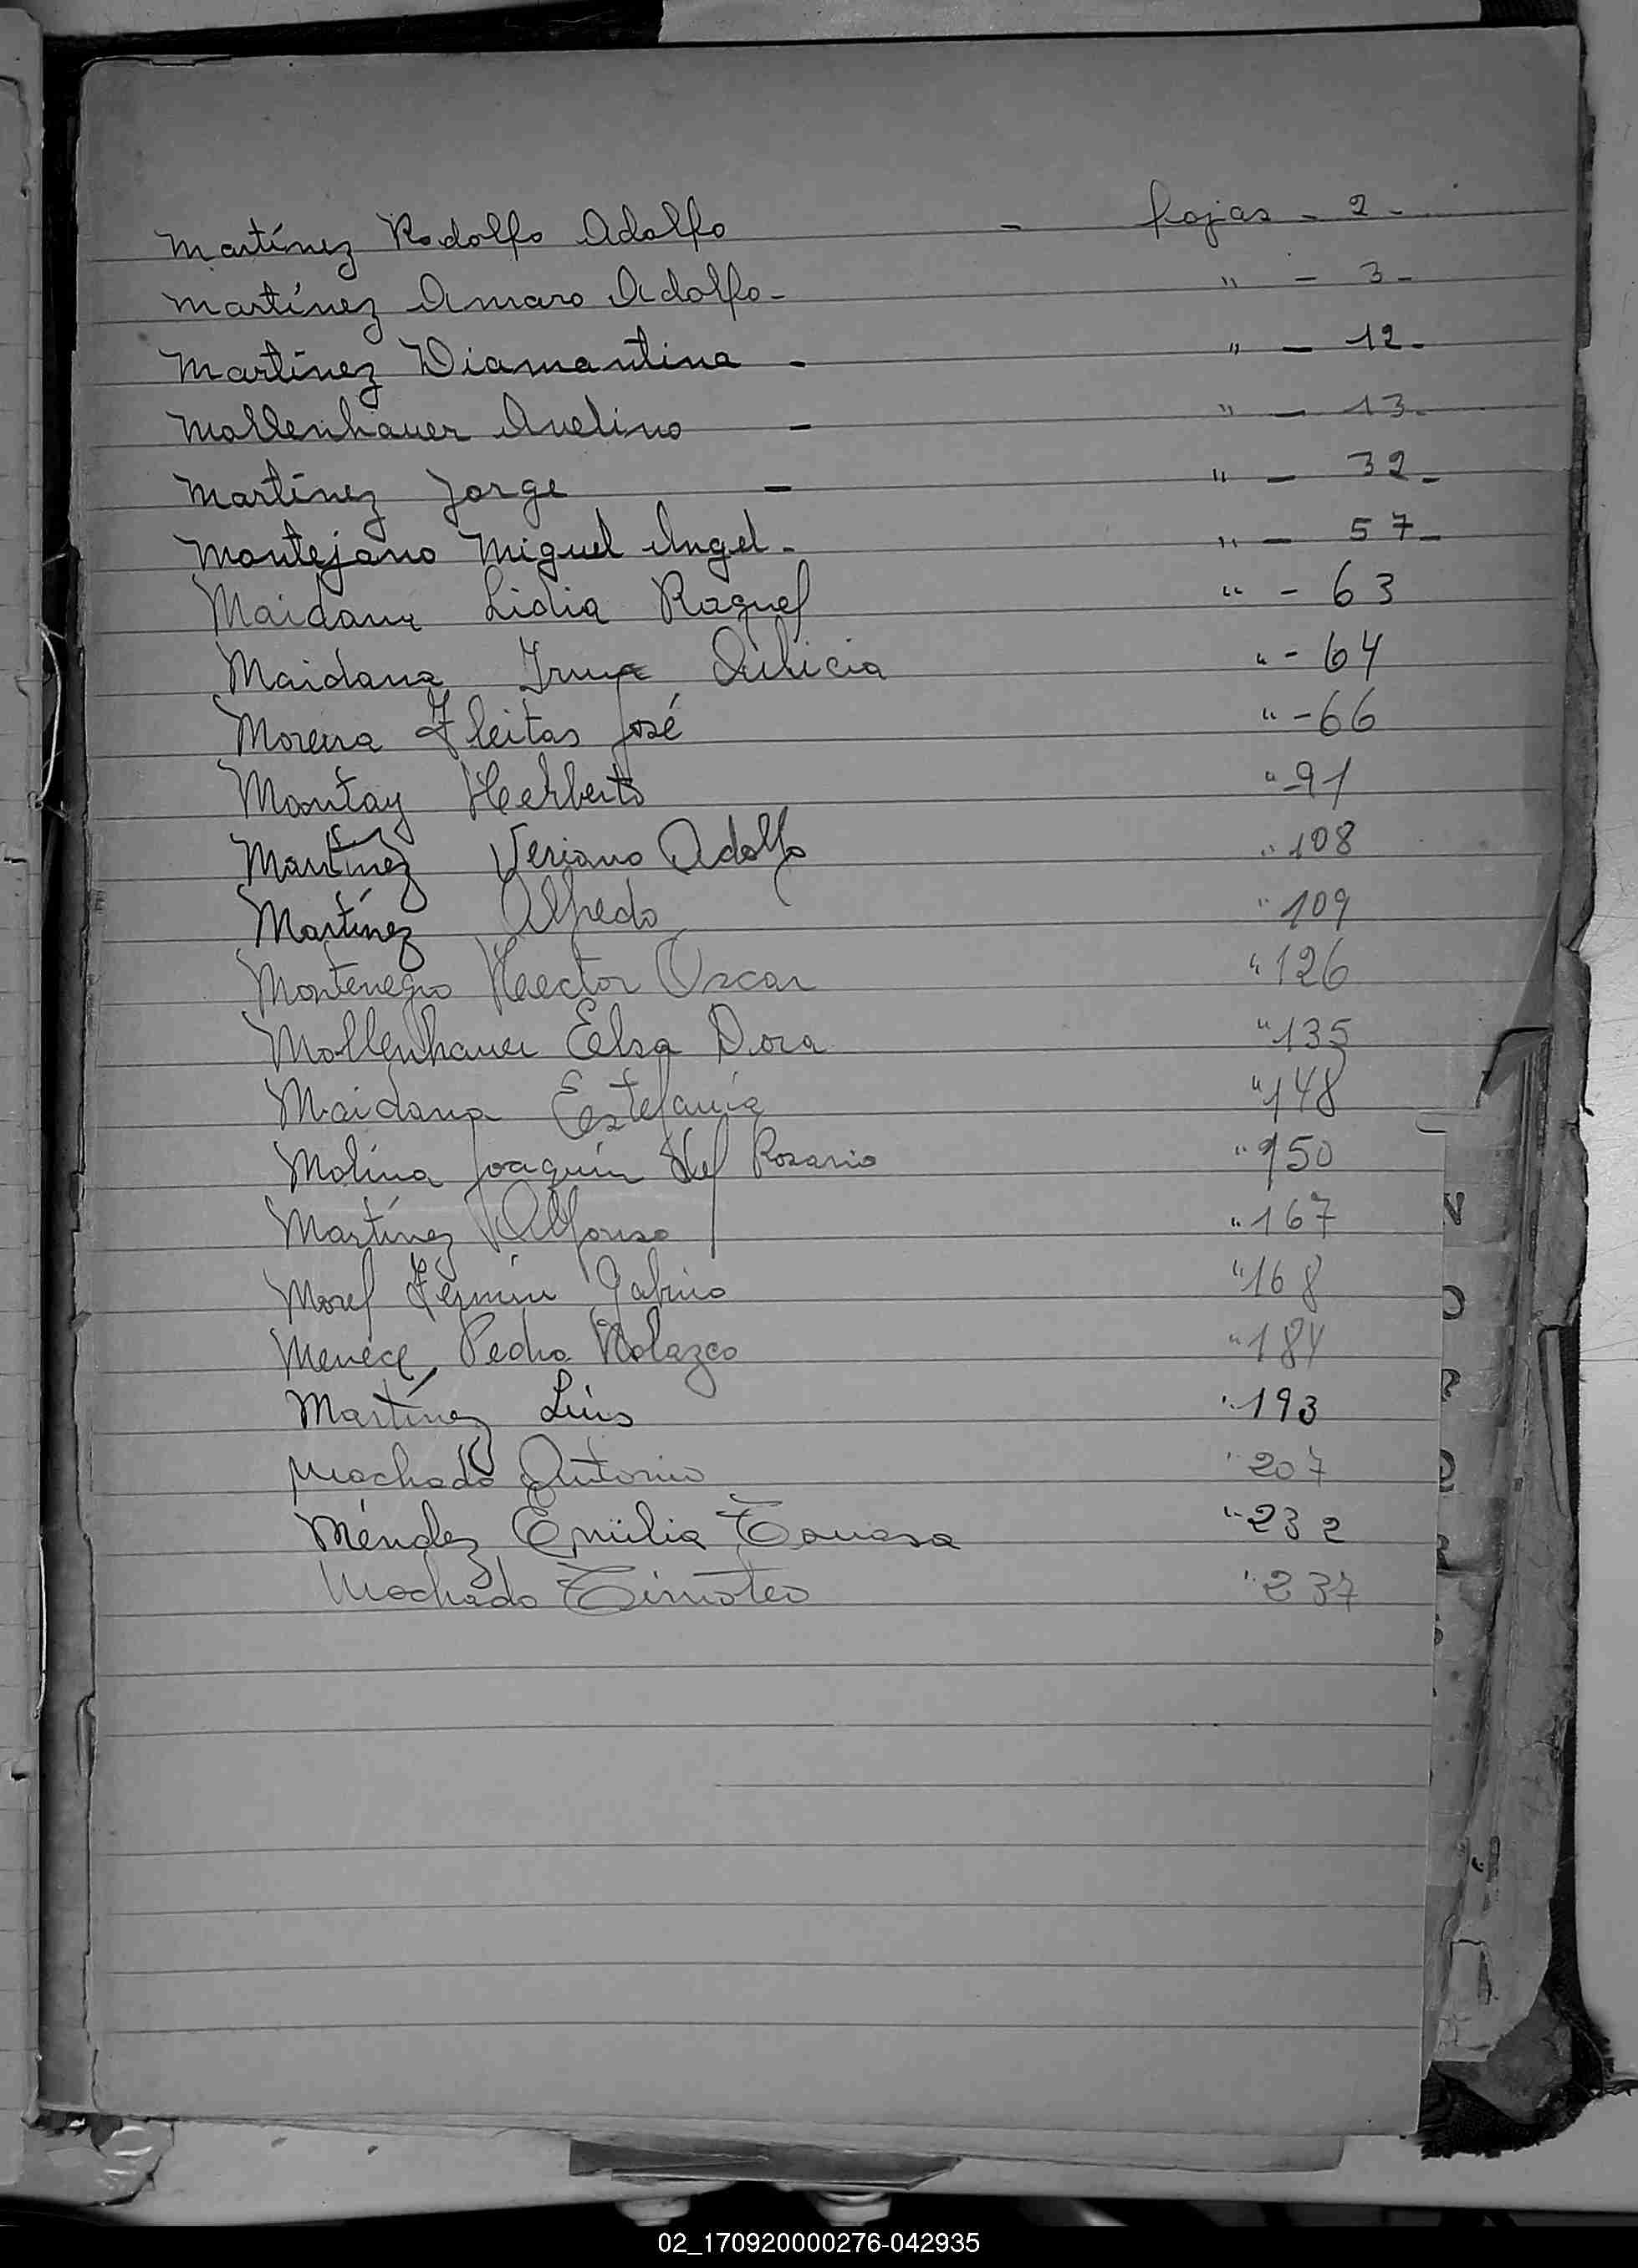 Martínez Rodolfo Adolfo - fojas - 2 -
Martínez Amaro Adolfo - " - 3 -
Martínez Diamantina - " - 12 -
Mollenhauer Avelino - " - 13 -
Martínez Jorge - " - 32 -
Montejano Miguel Angel - " - 57 -
Maidana Lidia Raquel " - 63
Maidana " - 64
Moreira Fleitas José " - 66
Montay Herberto " - 91
Martínez Veriano Adolfo " 108
Martínez Alfredo " 109
Montenegro Hector Oscar " 126
Mollenhauer Elsa Dora " 135
Maidana Estefanía " 148
Molina Joaquín del Rosario " 150
Martínez Alfonso " 167
Morel Fermín Gabino " 168
Pedro Nolazco " 184
Martínez Luis " 193
Machado Antonio " 207
Méndez Emilia Tomasa " 232
Machado Timoteo " 237
N
O
P
Q
R
02_170920000276-042935